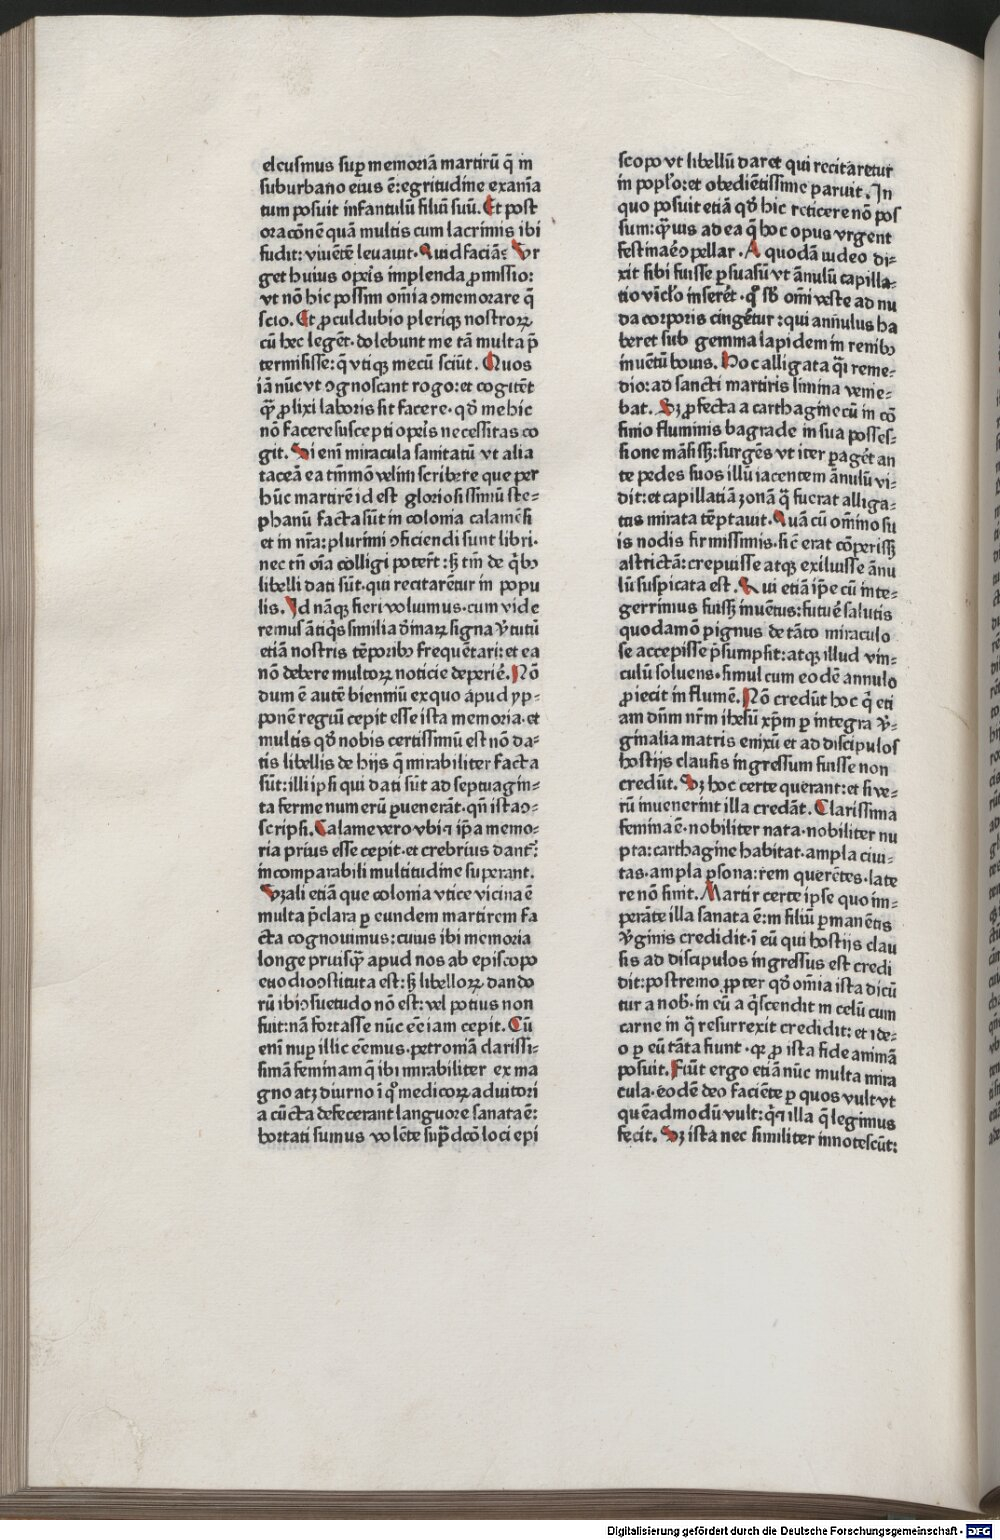 elcusmus sup memoriā martirū q̄ in
suburbano eius ē:egritudine exania
tum posuit infantulū filiū suū. Et post
oracōnē quā multis cum lacrimis ibi
fudit: viuētē leuauit. Quid faciā? Vr
get huius opis implenda ꝓmissio:
vt nō hic possim om̄ia ↄmemorare q̄
scio. Et ꝓculdubio pleriqꝫ nostroꝝ
cū hec legēt. dolebunt me tā multa p̄
termisisse: q̄ vtiqꝫ mecū sciūt. Quos
iā nūc vt ↄgnoscant rogo: et cogitēt
qꝫ̄ ꝓlixi laboris sit facere. qd̄ me hic
nō facere suscepti opis necessitas co
git. Si eni miracula sanitatū vt alia
taceā ea tm̄mō velim scribere que per
hūc martirē id est gloriosissimū ste=
phanū facta sūt in colonia calamēsi
et in nr̄a: plurimi ↄficiendi sunt libri.
nec tn̄ oīa colligi poterūt: sꝫ tm̄ de q̄bꝰ
libelli dati sūt. qui recitarētur in popu
lis. Id nāqꝫ fieri voluimus. cum vide
remus ātiq̄s similia diuinaꝝ signa v̓tutū
etiā nostris tēporibꝰ frequētari: et ea
nō debere multoꝝ noticie deperire. Nō
dum ē autē bienniū ex quo apud yp=
ponē regiū cepit esse ista memoria. et
multis qd̄ nobis certissimū est nō da=
tis libellis de hijs q̄ mirabiliter facta
sūt: illi ipsi qui dati sūt ad septuagin=
ta ferme numerū ꝑuenerāt. qn̄ ista ↄ=
scripsi. Calame vero vbi ⁊ ip̄a memo=
ria prius esse cepit. et crebrius dant̄:
incomparabili multitudine superant.
Vzali etiā que colonia vtice vicina ē
multa p̄clara ꝑ eundem martirem fa
cta cognouimus: cuius ibi memoria
longe priusqꝫ̄ apud nos ab episcopo
euodio ↄstituta est: sꝫ libelloꝝ dando
rū ibi ↄsuetudo nō est: vel potius non
fuit: nā fortasse nūc eē iam cepit. Cū
eni nup illic eēmus. petroniā clarissi=
simā feminam q̄ ibi mirabiliter ex ma
gno atqꝫ diurno ī qͦ medicoꝝ adiutori
a cūcta defecerant languore sanata ē:
hortati sumus volēte sup̄dcō loci epi
scopo vt libellū daret qui recitaretur
in popl̓o: et obediētissime paruit. In
quo posuit etiā qd̄ hic reticere nō pos
sum: qꝫ̄uis ad ea q̄ hoc opus vrgent
festinare ↄpellar. A quodā iudeo di=
xit sibi fuisse ꝑsuasū vt ānulū capilla=
tio vinc̓lo inserēt. qͥ sb̄ om̄i veste ad nu
da corporis cingētur: qui annulus ha
beret sub gemma lapidem in renibꝰ
inuētū bouis. Hoc alligata q̄i reme=
dio: ad sancti martiris limina venie=
bat. Sꝫ ꝓfecta a carthagine cū in cō
finio fluminis bagrade in sua posses=
sione māsissꝫ: surgēs vt iter ꝑagēt an
te pedes suos illū iacentem ānulū vi=
dit: et capillatiā zonā q̄ fuerat alliga=
tus mirata tēptauit. Quā cū om̄ino su
is nodis firmissimis. sic̄ erat cōperissꝫ
astrictā: crepuisse atqꝫ exiluisse ānu
lū suspicata est. Qui etiā ip̄e cū inte=
gerrimus fuissꝫ inuētus: futuē salutis
quodamō pignus de tāto miraculo
se accepisse p̄sumpsit: atqꝫ illud vin=
culū soluens. simul cum eodē annulo
ꝓiecit in flumē. Nō credūt hoc q̄ eti
am dn̄m nr̄m ihesū xp̄m ꝑ integra v̓=
ginalia matris enixū et ad discipulos
hostijs clausis ingressum fuisse non
credūt. Sꝫ hoc certe querant: et si ve=
rū inuenerint illa credāt. Clarissima
femina ē. nobiliter nata. nobiliter nu
pta: carthagine habitat. ampla ciui=
tas. ampla ꝑsona: rem querētes. late
re nō sinit. Martir certe ipse quo im=
perāte illa sanata ē: in filiū ꝑmanētis
v̓ginis credidit. ī eū qui hostijs clau
sis ad discipulos ingressus est credi
dit: postremo ꝓpter qd̄ om̄ia ista dicū
tur a nob̓. in eū a q̓scendit in celū cum
carne in q̄ resurrexit credidit: et ide=
o ꝑ eū tāta fiunt. qꝛ ꝓ ista fide animā
posuit. Fiūt ergo etiā nūc multa mira
cula. eodē deo faciēte ꝑ quos vult vt
quēadmodū vult: q̓ ⁊ illa q̄ legimus
fecit. Sꝫ ista nec similiter innotescūt:
Digitalisierung gefördert durch die Deutsche Forschungsgemeinschaft - DFG